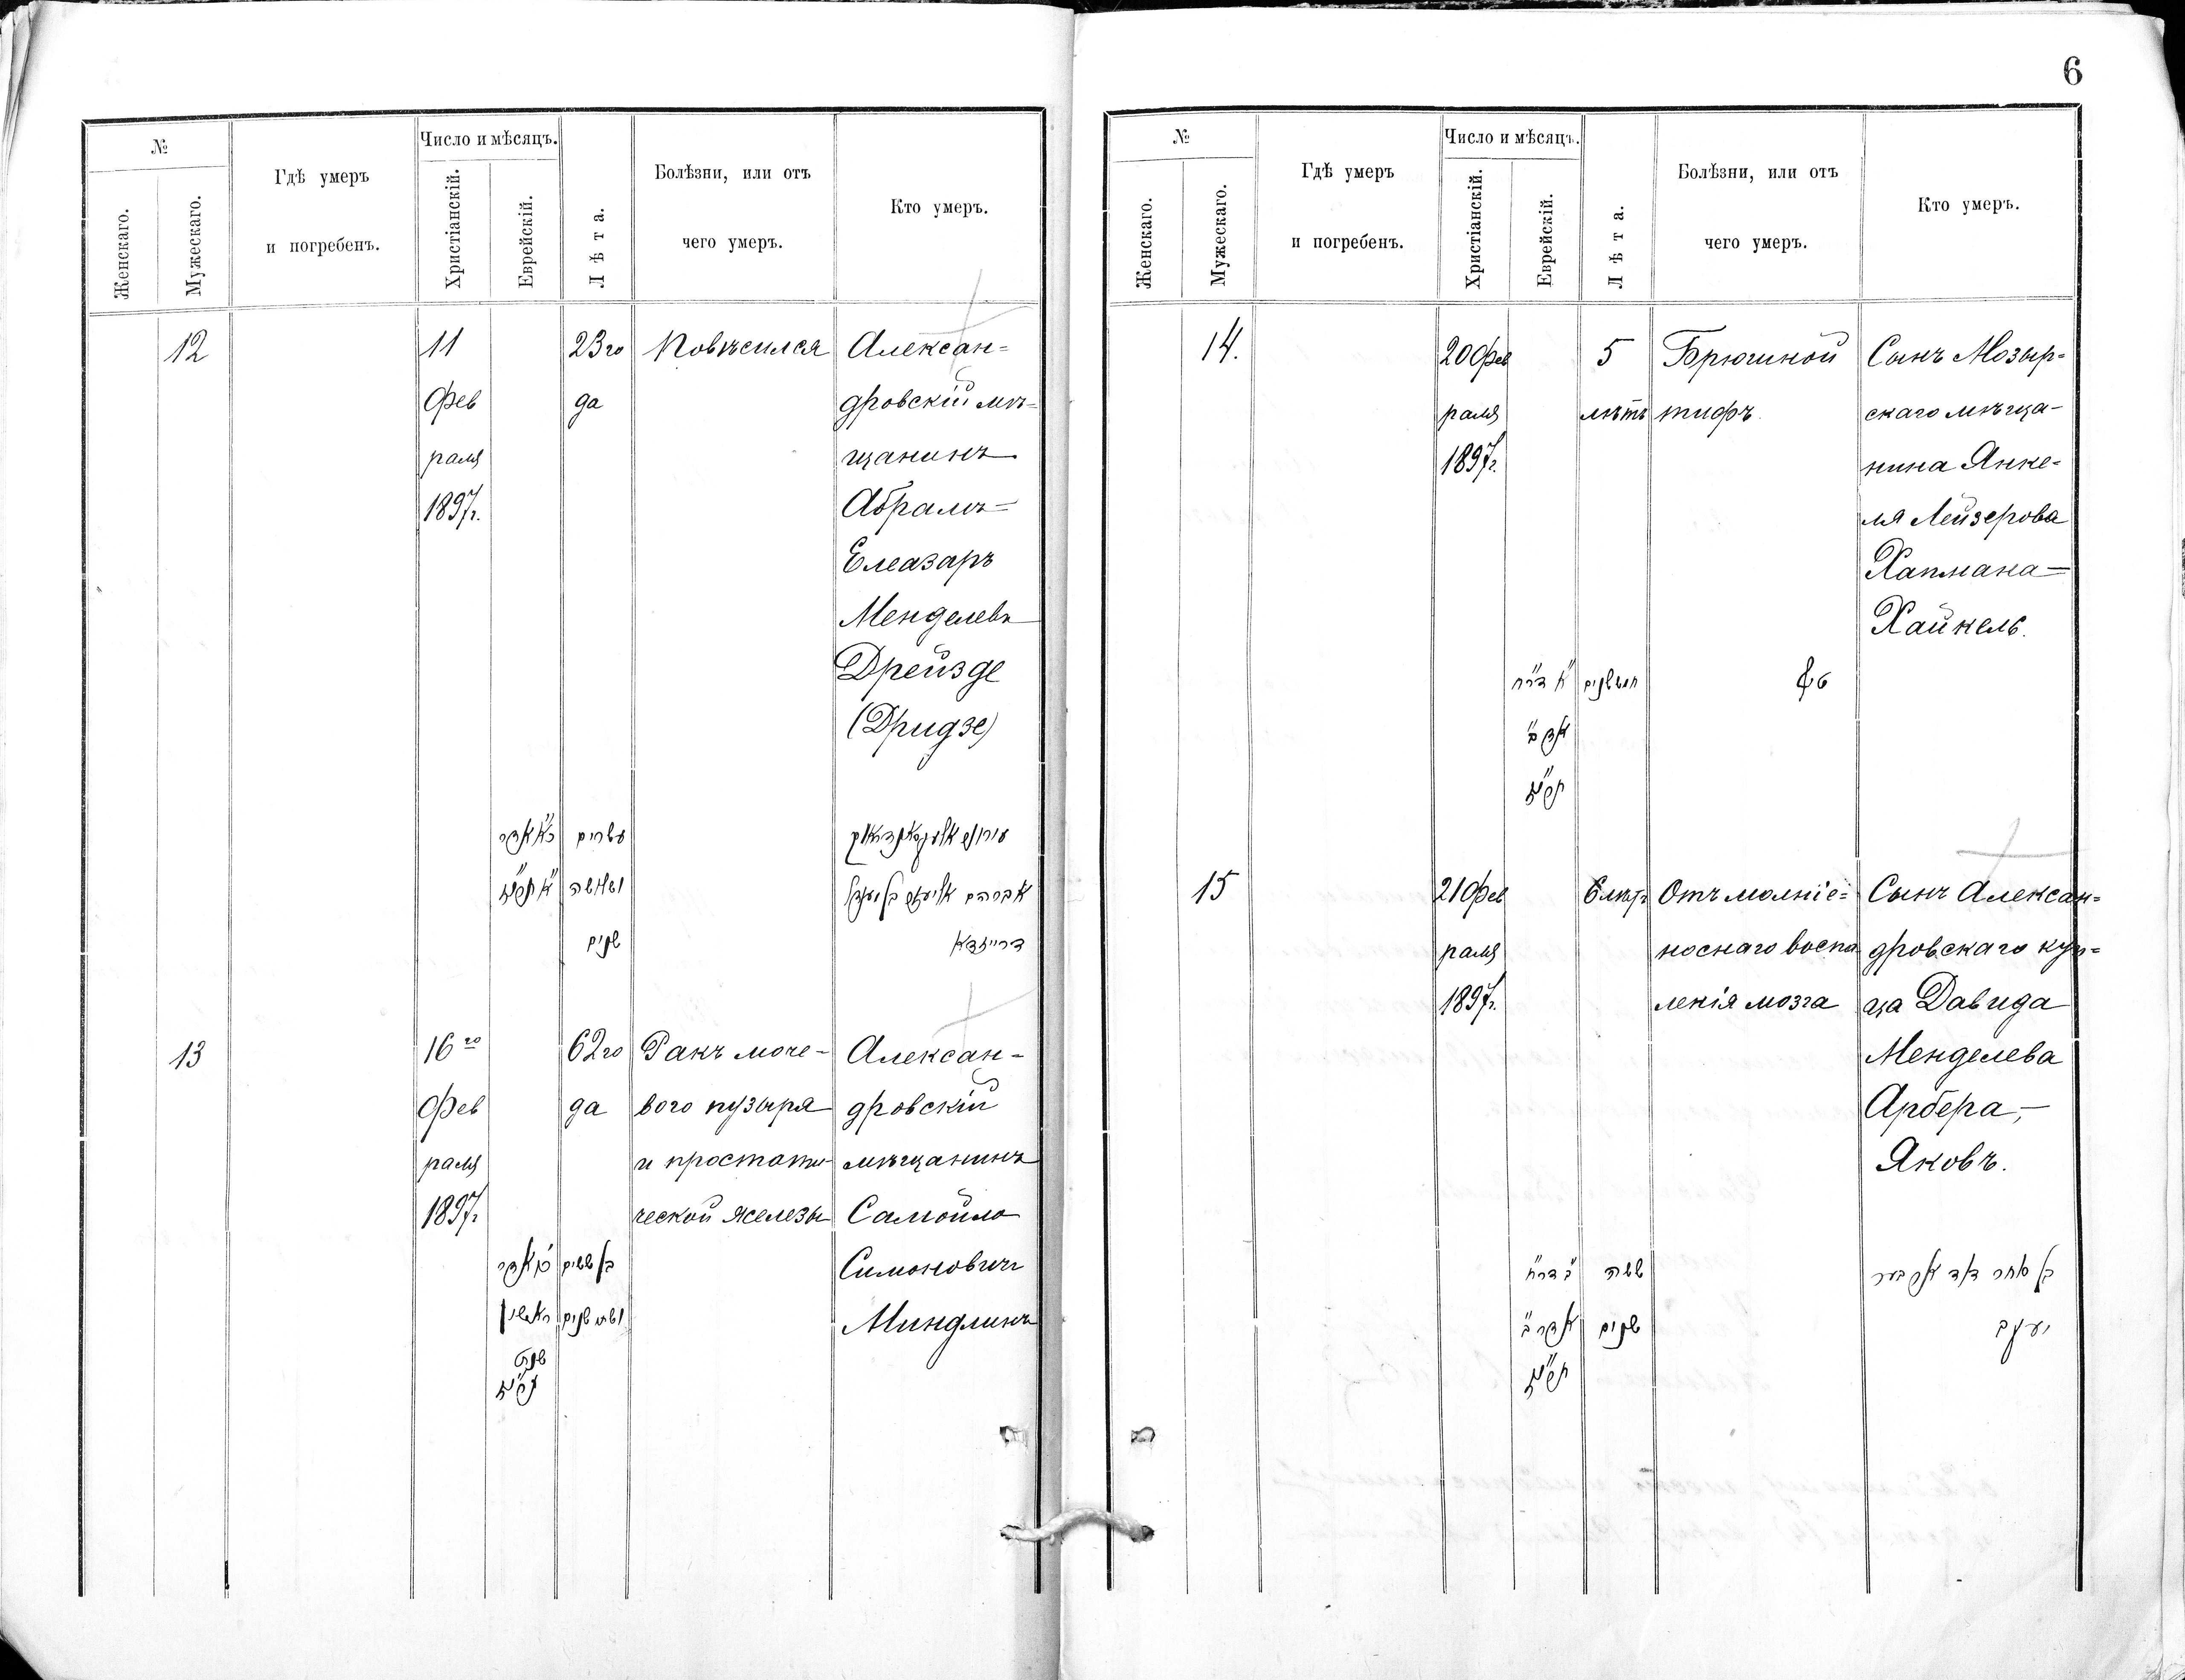 6
№
Женскаго.
Мужескаго.
Гдѣ умеръ
и погребенъ.
Число и мѣсяцъ.
Христіанскій.
Еврейскій.
Лѣта.
Болѣзни, или отъ
чего умеръ.
Кто умеръ.
12
11
Фев
раля
1897г.
23го
да
Повѣсился
Алексан=
дровскій мѣ=
щанинъ
Абрамъ=
Елеазаръ
Менделевъ
Дрейзде
(Дридзе)
אדר
עשרים
ושלושה
שנים
אברהם אליעזר בן מענדל
דרייזדא
13
16го
Фев
раля
1897г.
62го
да
Ракъ моче-
вого пузыря
и простати-
ческой железы
Алексан-
дровскій
мѣщанинъ
Самойло
Симоновичъ
Миндлинъ
אדר
ראשון
שנת
בן ששים
שנים
№
Женскаго.
Мужескаго.
Гдѣ умеръ
и погребенъ.
Число и мѣсяцъ.
Христіанскій.
Еврейскій.
Лѣта.
Болѣзни, или отъ
чего умеръ.
Кто умеръ.
14.
20 Фев
раля
1897г.
5
лѣтъ
Брюшной
тифъ
Сынъ Мозыр=
скаго мѣща-
нина Янке-
ля Лейзерова
Хапмана-
Хайкель.
א׳ דר״ח
15
21 Фев
раля
1897г.
6 лѣтъ
Отъ молніе=
носнаго воспа
ленія мозга
Сынъ Алексан=
дровскаго куп=
ца Давида
Менделева
Арбера,-
Яковъ.
ב׳ דר״ח
ששה
שנים
בן סוחר דוד ארבער
יעקב